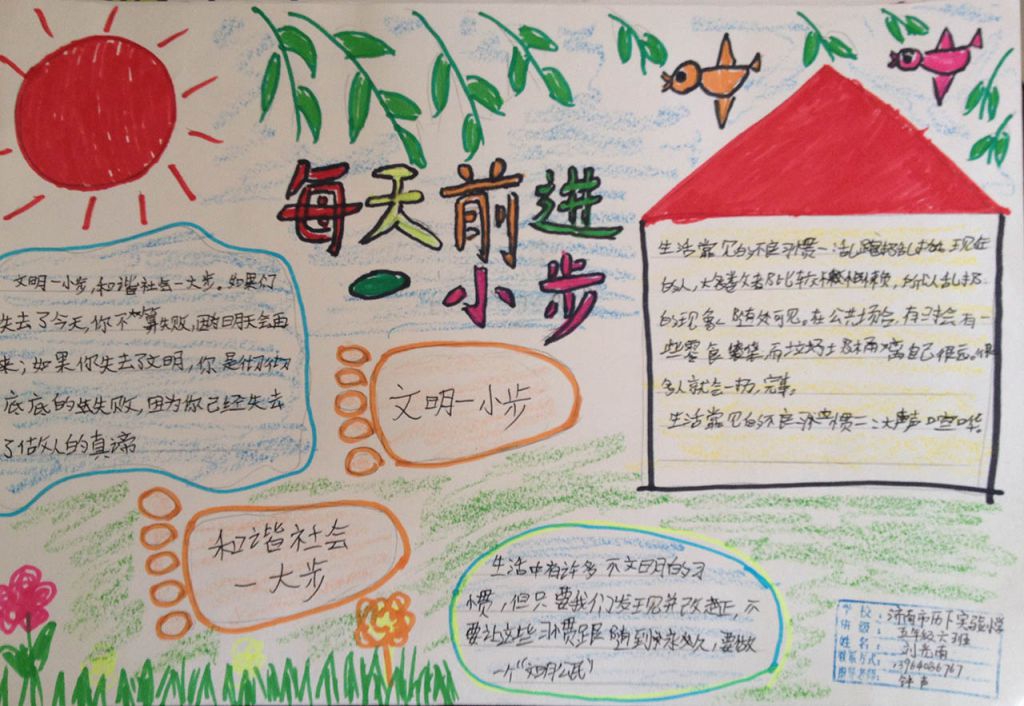 每天前进
一小步
文明一小步,和谐社会一大步。如果们
失去了今天,你不算失败,因为明天会再
来;如果你失去了文明,你是彻彻
底底的失败,因为你已经失去
了做人的真谛
文明一小步
和谐社会
一大步
生活常见的不良习惯一:乱踢乱扔。现在
的人,大多数者都比较懒,所以乱扔
的现象随处可见。在公共场合,有时会有一
些零食袋,而垃圾桶离自己很远,很
多人就会一扔,完事。
生活常见的不良习惯二:大声喧哗
生活中有许多不文明的习
惯,但只要我们发现并改正,不
要让这些习惯跟随到永久,要做
一个“文明公民”
学校:济南市历下实验小学
班级:五年级六班
姓名:
联系方式:13964086767
钟声